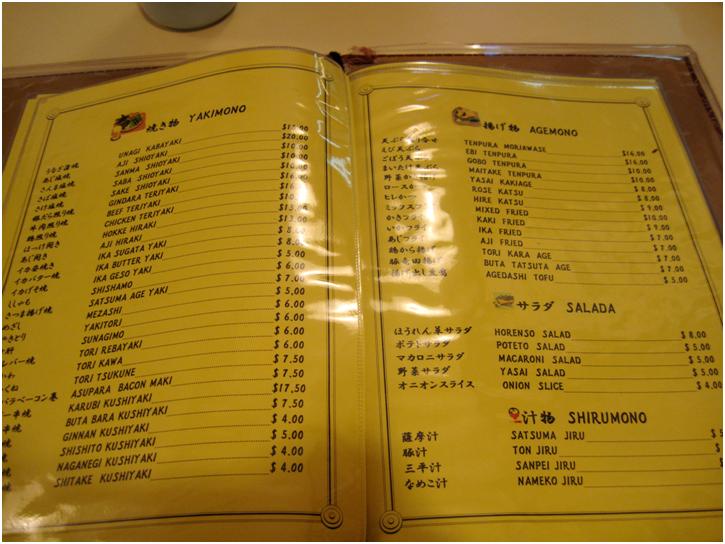 焼き物 YAKIMONO
うなぎ蒲焼 UNAGI KABAYAKI
あじ塩焼 AJI SHIOYAKI $20.00
さんま塩焼 SANMA SHIOYAKI $10.00
さば塩焼 SABA SHIOYAKI $10.00
さけ塩焼 SAKE SHIOYAKI $10.00
銀だら照り焼 GINDARA TERIYAKI
牛肉照り焼 BEEF TERIYAKI
鶏照り焼 CHICKEN TERIYAKI
ほっけ開き HOKKE HIRAKI
あじ開き AJI HIRAKI $13.00
イカ姿焼き IKA SUGATA YAKI $ 8.00
イカバター焼 IKA BUTTER YAKI $ 8.00
イカげそ焼 IKA GESO YAKI $ 5.00
ししゃも SHISHAMO $ 6.00
さつま揚げ焼 SATSUMA AGE YAKI $ 7.00
めざし MEZASHI $ 5.00
YAKITORI $ 6.00
SUNAGIMO $ 6.00
TORI REBAYAKI $ 6.00
TORI KAWA $ 6.00
TORI TSUKUNE $ 7.50
ASUPARA BACON MAKI $ 7.50
KARUBI KUSHIYAKI $17,50
BUTA BARA KUSHIYAKI $ 7.50
GINNAN KUSHIYAKI $ 4.00
SHISHITO KUSHIYAKI $ 5.00
NAGANEGI KUSHIYAKI $ 4.00
SHITAKE KUSHIYAKI $ 4.00
揚げ物 AGEMONO
TENPURA MORIAWASE $16.00
えび天ぷら EBI TENPURA $16.00
ごぼう天 GOBO TENPURA $10.00
まいたけ MAITAKE TENPURA $10.00
野菜かき揚げ YASAI KAKIAGE $10.00
ロースかつ ROSE KATSU $ 8.00
ヒレかつ HIRE KATSU $ 8.00
ミックスフライ MIXED FRIED $ 9.00
かきフライ KAKI FRIED $10.00
いかフライ IKA FRIED $ 9.00
あじフライ AJI FRIED $ 7.00
鶏から揚げ TORI KARA AGE $ 7.00
豚竜田揚げ BUTA TATSUTA AGE $ 7.00
揚げ出し豆腐 AGEDASHI TOFU $ 5.00
サラダ SALADA
ほうれん草サラダ HORENSO SALAD $ 8.00
ポテトサラダ POTETO SALAD $ 5.00
マカロニサラダ MACARONI SALAD $ 5.00
野菜サラダ YASAI SALAD $ 5.00
オニオンスライス ONION SLICE $ 4.00
汁物 SHIRUMONO
薩摩汁 SATSUMA JIRU $
豚汁 TON JIRU $
三平汁 SANPEI JIRU $
なめこ汁 NAMEKO JIRU $